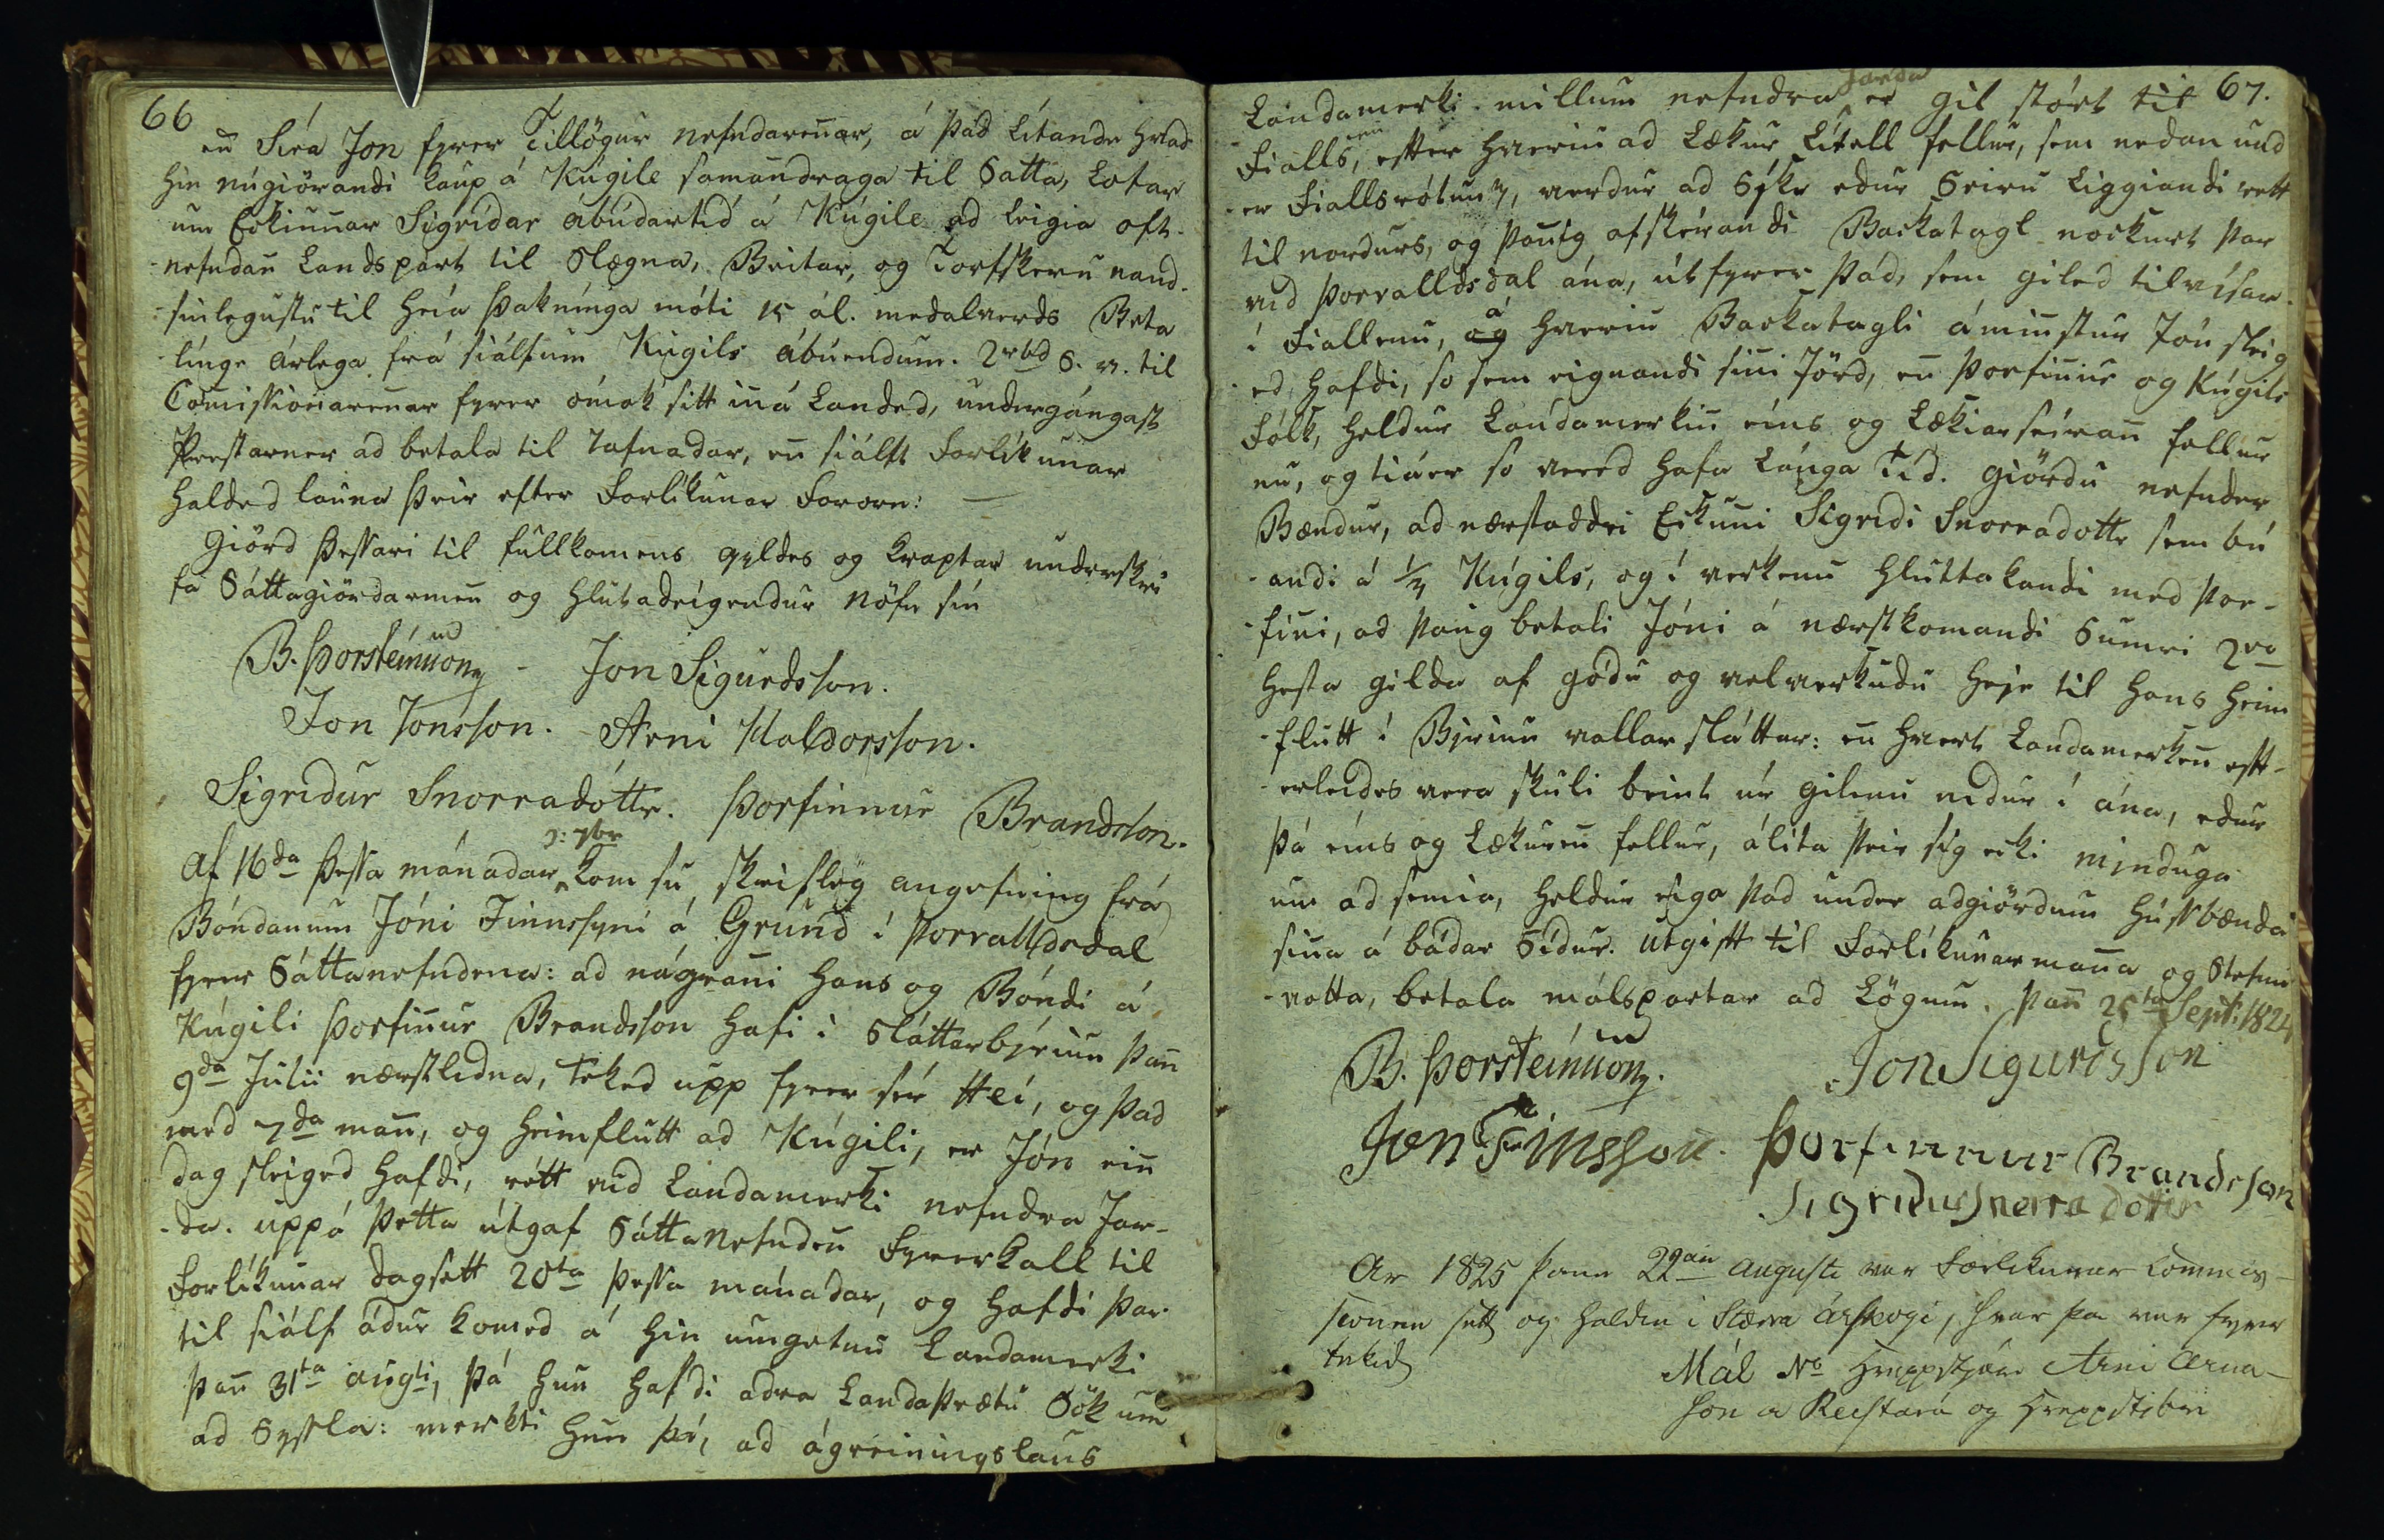 66
en Síra Jon fyrer Tillögur nefndarennar, á það lítande hvad
hin nugiörandi kaup á Kúgile samandraga til Satta, lofar
um Eckiunnar Sigridar ábúdartid á Kúgile ad leigia oft-
nefndan Landspart til Slægna, Beitar, og Torfskeru naud-
sinlegustu til heia þaknínga móti 15 ál. medalverds Beta
línge árlega frá siálfum Kúgils ábúendum. 2 rbd S. v. til
Comissionarennar fyrer ómak sitt iná Landed, undergángast
Prestarner ad betala til Jafnadar, en siálft Forlíkunar
Halded launa þeir efter Forlikunar Forordn:
Giörd þessari til fullkomens gyldes og kraptar underskri
fa Sáttagiördarmenn og hlutadeigendur nöfn sin
B. Þorsteinsson mp - Jon Sigurdsson.
Jon Jonsson. Arni Haldorsson.
Sigridur Snorradóttr. Þorfinnur Brandsson.
Af 16da þessa mánadar ɔ: 7br kom sú skriflög angefning frá
Bóndanum Jóni Finnssyni á Grúnd i Þorvalldsdal
fyrer Sáttanefndena: ad nágranni hans og Bóndi á
Kúgili Þorfinnur Brandsson hafi i Sláttarbyriun þann
9da Julii næstlidna, teked upp fyrer sér Hei, og þad
med 7da mann, og heimflutt ad Kúgili, er Jón einn
dag sleiged hafdi, rétt vid Landamerki nefndra Jar-
-da. uppá þetta útgaf SáttaNefnden Fyrerkall til
Forlíkunar dagsett 20ta þessa mánadar, og hafdi þar
til siálf ádur komed á hin umgetnu Landamerki
þann 31ta augti, þá hun hafdi adra Landaþrætu Sök um
ad Syssla: merkti hun þá, ad ágreiningslaus
67.
Landamerki millum nefndra Jarda er gil stórt til
Fialls, efter hveriu ad Lækur Lítell fellur, sem nedan und
er Fiallsrótum, verdur ad Syke edur Seiru liggiandi rett
til nordurs, og þannig afskérandi Backatagl nockurt þar
vid Þorvalldsdal ána, útfyrer það, sem giled tilvísar
i Fiallenu, og á hveriu Backatagli áminstur Jón sleig
ed hafdi, so sem eignandi sinni Jörd, en Þorfinnur og Kúgils
Fólk, heldur Landamerkin eins og Lækiar seiran fellur
nu, og tiáer so vered hafa Lánga Tíd. giördu nefnder
Bændur, ad nærstaddri Eckiuni Sigridi Snorradottr sem bú
-andi á 1/2 Kúgils, og í verkenu hluttakandi med Þor-
-finni, ad þaug betali Jóni á nærstkomandi Sumri 2va
hesta gilda af gódu og velverkudu heye til hans heim
-flutt í Byriun vallar sláttar: en hvert Landamerken eft-
erleidis vera skuli beint úr gilenu nidur i ána, edur
þá eins og Lækuren fellur, álita þeir sig ecki mynduga
um ad semia, heldur eiga þad under adgiördum hússbænda
sinna á bádar Sídur. utgift til Forlíkunarmanna og Stefnu
-votta, betala málspartar ad Lögum. þann 25ta Sept. 1824
B. Þorsteinsson mp. Jon Sigurdsson
Jon Finsson. Þorfinnur Brandsson
Sigridur Snorradottir
Ar 1825 þann 22an augusti var Forlikunar Commis-
sionen sett og haldin i Stærra Árskogi, hvar þa var fyrer
tekid
Mál No Hreppstjóra Arni Arna-
son a Reistará og Hreppstióri